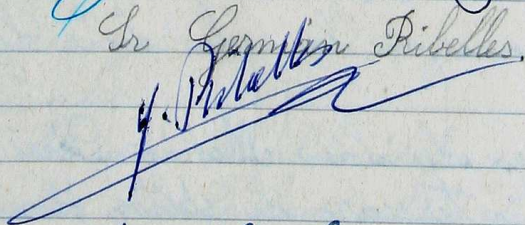 Sr Germán Ribelles.
G. Ribelles